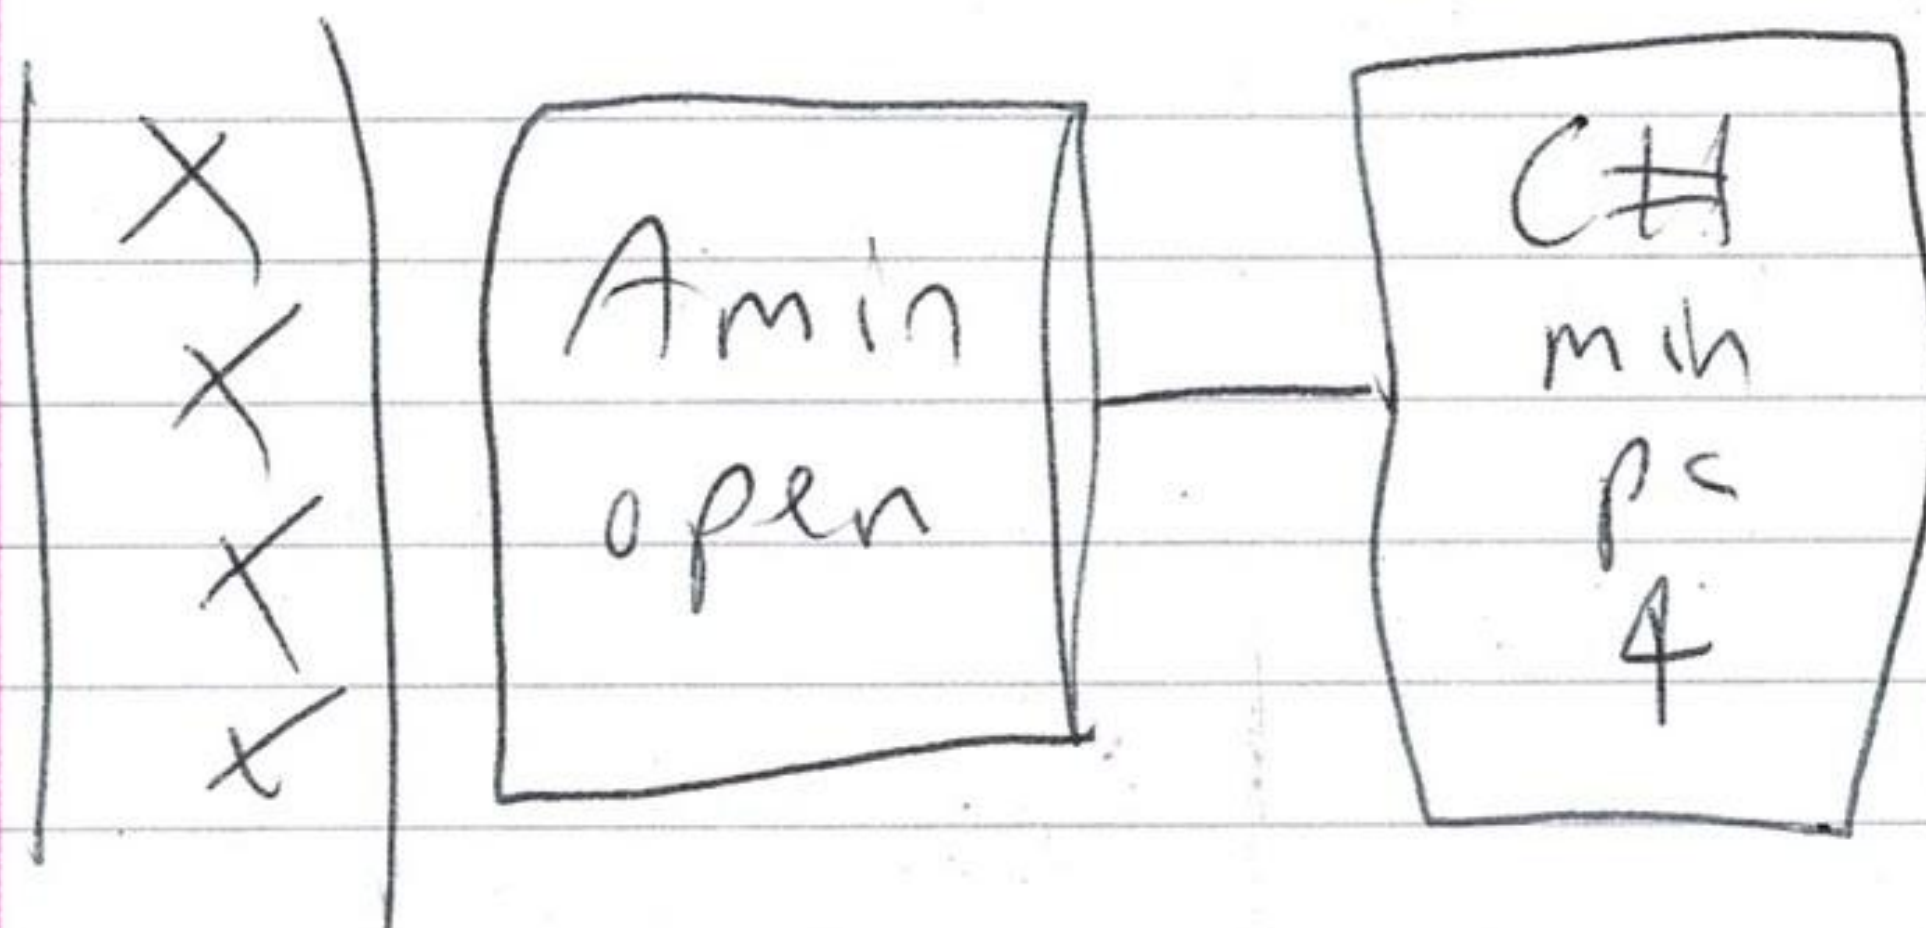 X
X
X
X
Amin
open
CH
min
pc
4